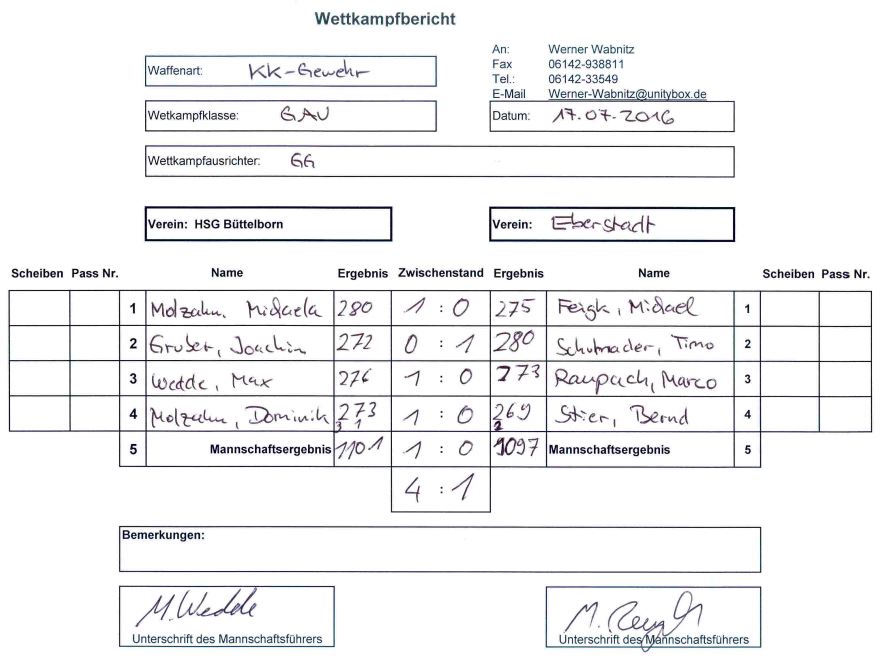 Wettkampfbericht
An: Werner Wabnitz
Waffenart: KK-Gewehr
Fax 06142-938811
Tel.: 06142-33549
E-Mail Werner-Wabnitz@unitybox.de
Wetkampfklasse: GAU
Datum: 17.07.2016
Wettkampfausrichter: GG
Verein: HSG Büttelborn
Verein: Eberstadt
Scheiben Pass Nr. Name Ergebnis Zwischenstand Ergebnis Name Scheiben Pass Nr.
1 Molzahn, Michaela 280 1 : 0 275 Feigk, Michael 1
2 Gruber, Joachim 272 0 : 1 280 Schuhmacher, Timo 2
3 Wedde, Max 276 1 : 0 273 Raupach, Marco 3
4 Molzahn, Dominik 273 1 : 0 269 Stier, Bernd 4
3 1 2
5 Mannschaftsergebnis 1101 1 : 0 1097 Mannschaftsergebnis 5
4 : 1
Bemerkungen:
M. Wedde
Unterschrift des Mannschaftsführers
M.
Unterschrift des Mannschaftsführers